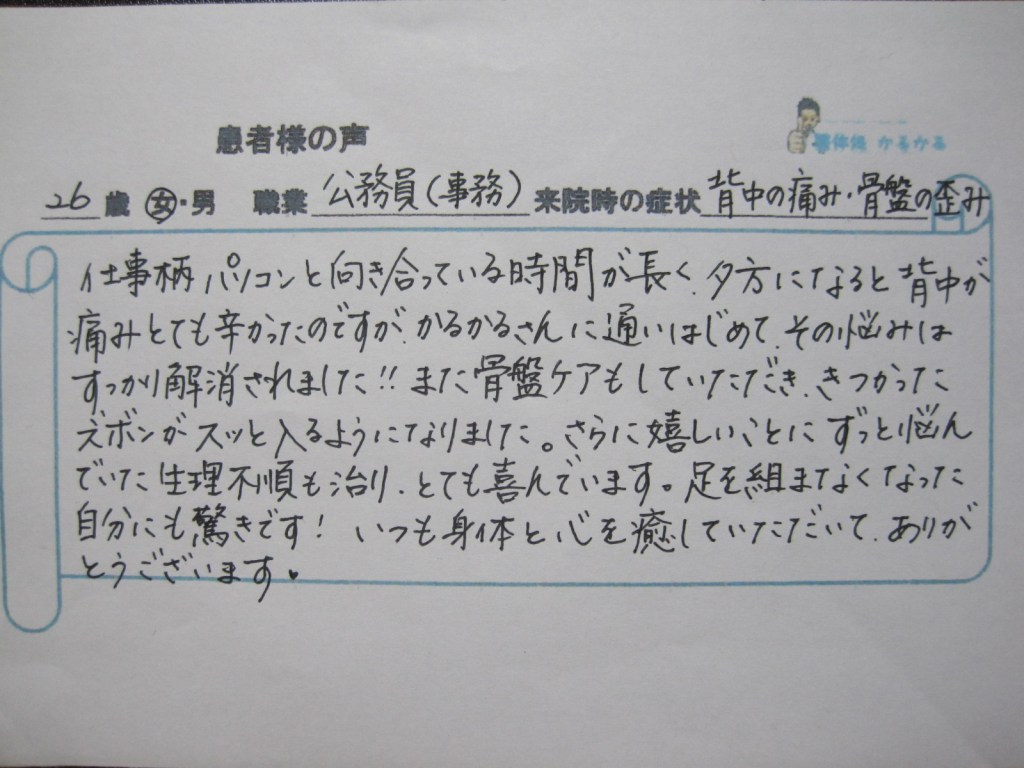 患者様の声
整体処 かるかる
26 歳 女・男 職業 公務員(事務) 来院時の症状 背中の痛み・骨盤の歪み
仕事柄 パソコンと向き合っている時間が長く、夕方になると背中が
痛みとても辛かったのですが、かるかるさんに通いはじめて、その悩みは
すっかり解消されました!! また骨盤ケアもしていただき、きつかった
ズボンがスッと入るようになりました。さらに嬉しいことに ずっと悩ん
でいた生理不順も治り、とても喜んでいます。足を組まなくなった
自分にも驚きです! いつも身体と心を癒していただいて、ありが
とうございます。